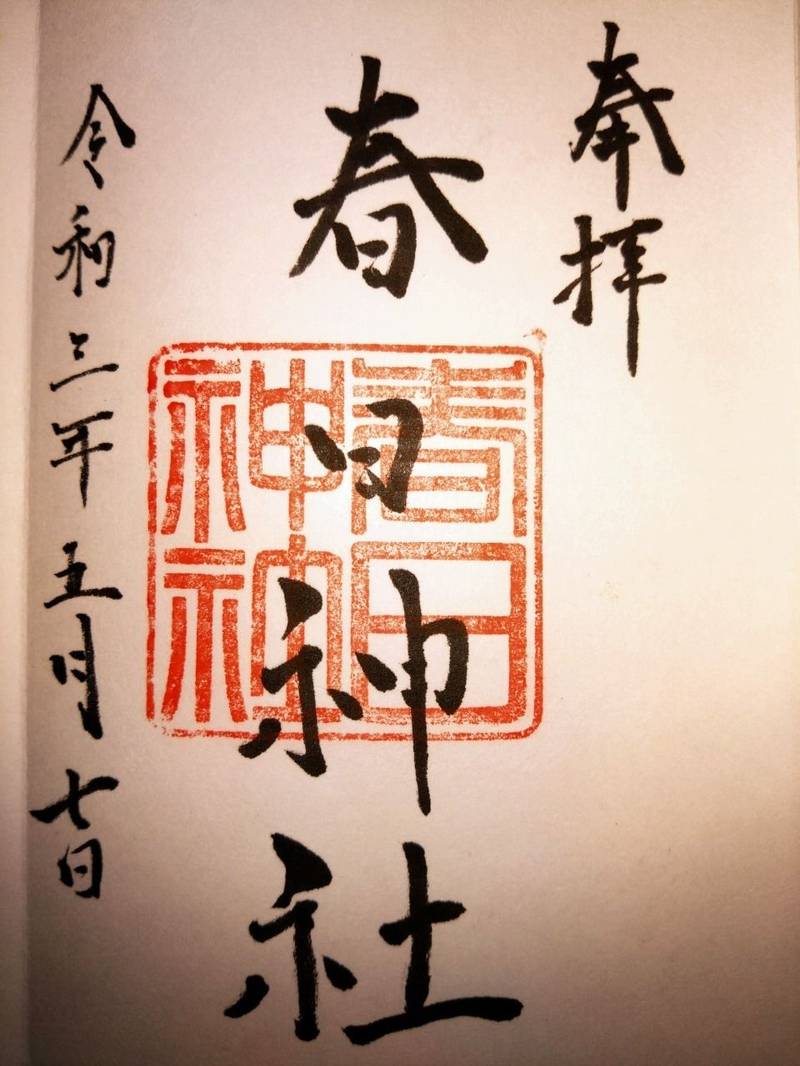 奉拝
春日神社
春日
神社
令和三年五月七日